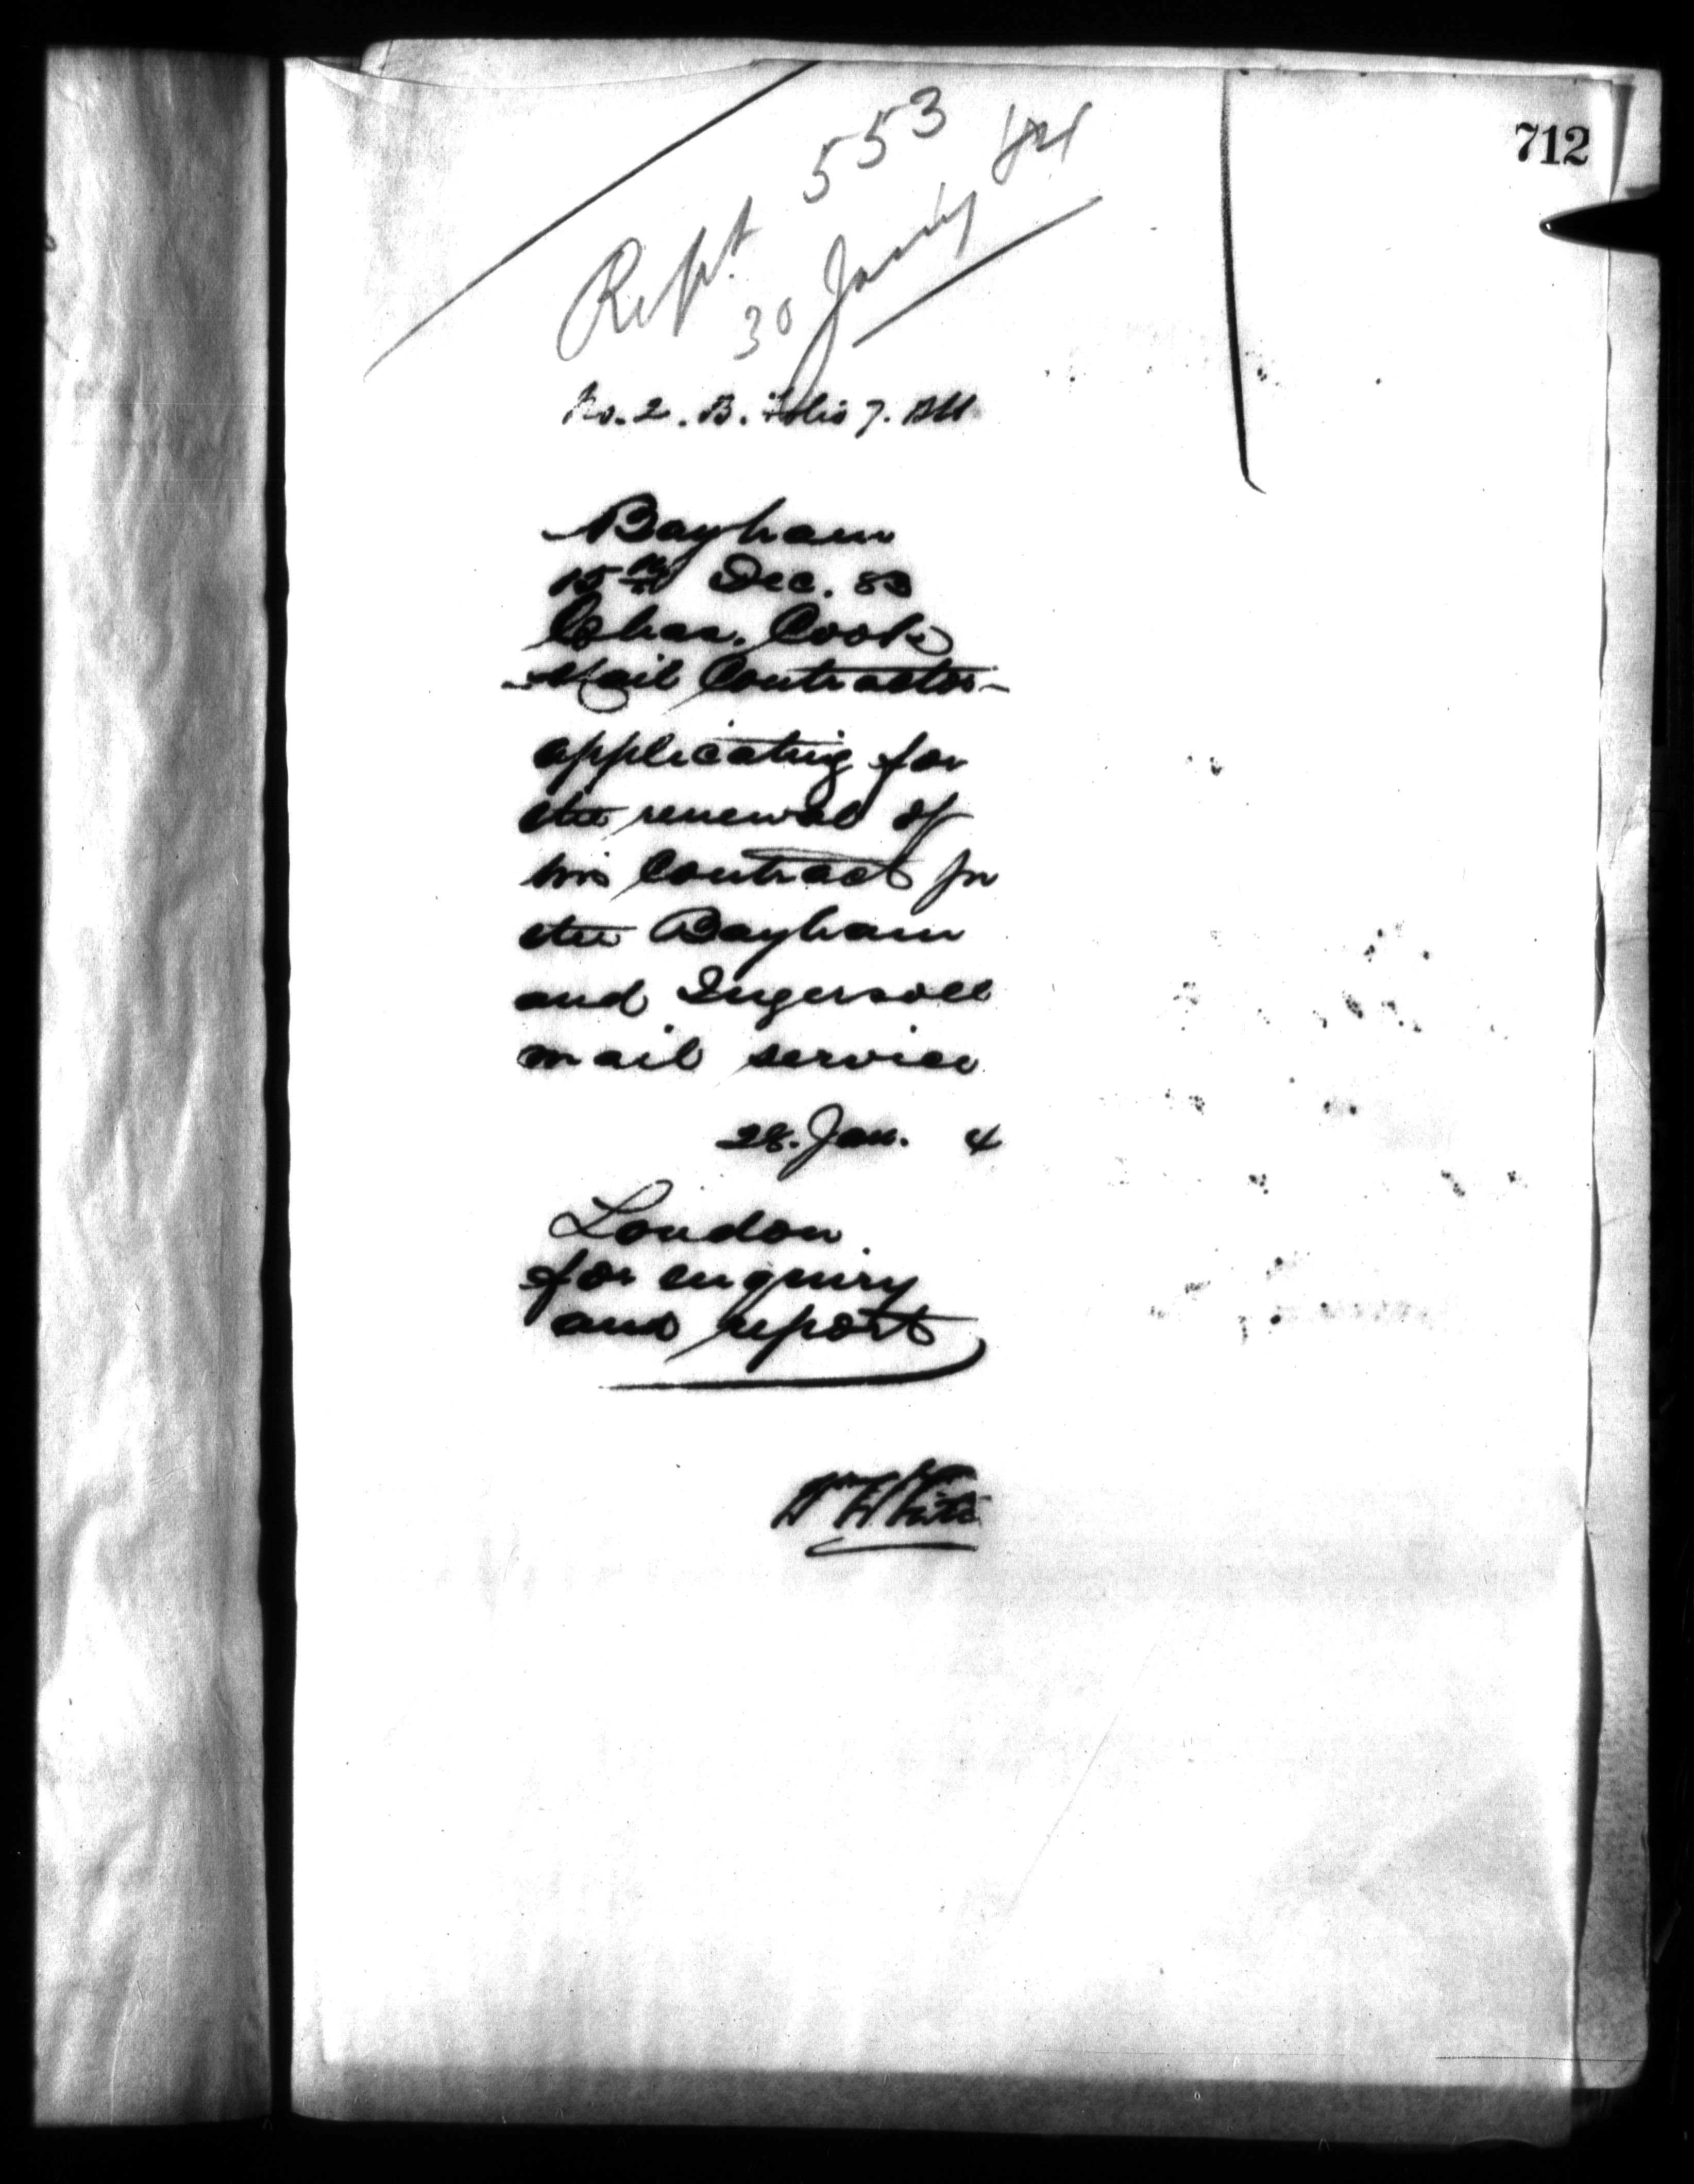 712
Rept. 553
30 Jany 84
No. 2. B. Folio 7.
Bayham
15th Dec. 83
Chas. Cook
Mail Contractor
applicating for
the renewal of
his Contract for
the Bayham
and Ingersoll
mail service
28. Jan. 4
London
for enquiry
and report
Wm White